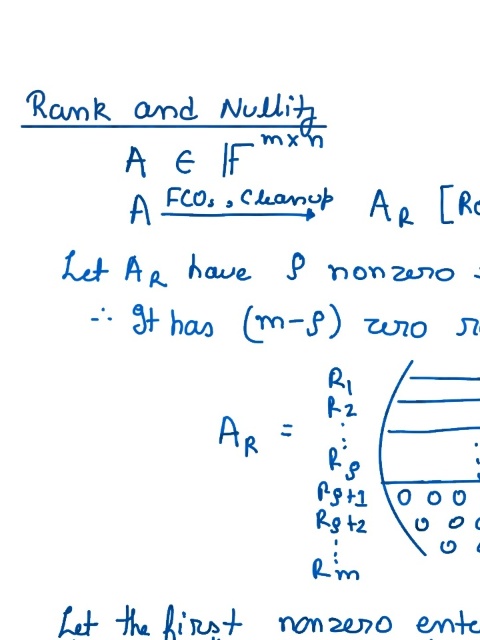 Rank and Nullity
A ∈ F^{m×n}
A FCOs, Cleanup → A_R [Ro
Let A_R have ρ nonzero
∴ It has (m-ρ) zero r
R_1
R_2
⋮
A_R =
R_ρ
R_{ρ+1} 0 0 0
R_{ρ+2} 0 0 0
⋮ 0
R_m
Let the first nonzero ente